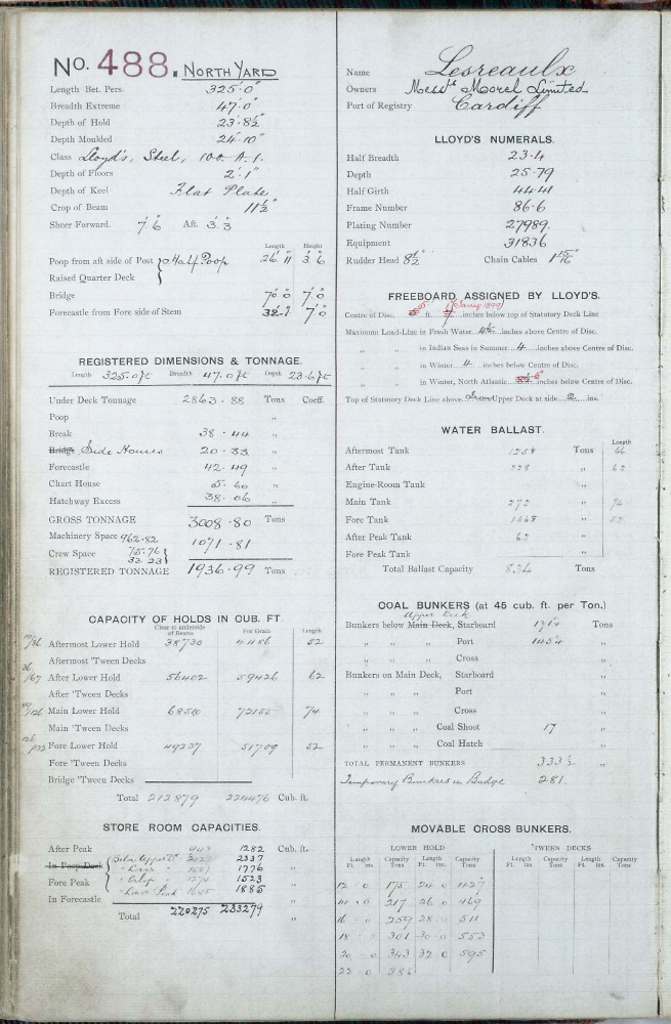 No. 488. NORTH YARD
Length Bet. Pers. 325'.0"
Breadth Extreme 47'.0"
Depth of Hold 23'.8½"
Depth Moulded 24'.10"
Class Lloyd's, Steel, 100. A. 1.
Depth of Floors 2'.1"
Depth of Keel Flat Plate
Crop of Beam 11½"
Sheer Forward. 7'.6" Aft 3'.3"
Length Height
Poop from aft side of Post } Half Poop 26'.11" 3'.6"
Raised Quarter Deck
Bridge 70'.0" 7'.0"
Forecastle from Fore side of Stem 7'.0"
REGISTERED DIMENSIONS & TONNAGE.
Length 325.0ft Breadth 47.0ft Depth 23.6ft
Under Deck Tonnage 2863.88 Tons Coeff.
Poop "
Break 38.44 "
Bridge Side Houses 20.33 "
Forecastle 42.49 "
Chart House 5.60 "
Hatchway Excess 38.06 "
GROSS TONNAGE 3008.80 Tons
Machinery Space 962.82
1071.81
Crew Space 75.76
33.23 }
REGISTERED TONNAGE 1936.99 Tons
CAPACITY OF HOLDS IN CUB. FT.
Clear to underside of Beams For Grain Length
Aftermost Lower Hold 38730 41486 52
Aftermost 'Tween Decks
After Lower Hold 56402 59426 62
After 'Tween Decks
Main Lower Hold 68510 72155 74
Main 'Tween Decks
Fore Lower Hold 49237 51709 52
Fore 'Tween Decks
Bridge 'Tween Decks
Total 212879 224476 Cub. ft.
STORE ROOM CAPACITIES.
After Peak 1282 Cub. ft.
In Poop Deck Below Upper Dk 2337 "
" Lower " 1776 "
Fore Peak 1523 "
" Lower Peak 1645 1885 "
In Forecastle "
Total 220275 233279 "
Name Lesreaulx
Owners Messrs Morel Limited
Port of Registry Cardiff
LLOYD'S NUMERALS.
Half Breadth 23.4
Depth 25.79
Half Girth 44.41
Frame Number 86.6
Plating Number 27989.
Equipment 31836
Rudder Head 8½" Chain Cables 1 15/16"
FREEBOARD ASSIGNED BY LLOYD'S.
Centre of Disc. 5 ft. inches below top of Statutory Deck Line
Maximum Load-Line in Fresh Water 4½ inches above Centre of Disc.
" " in Indian Seas in Summer 4 inches above Centre of Disc.
" " in Winter 4 inches below Centre of Disc.
" " in Winter, North Atlantic inches below Centre of Disc.
Top of Statutory Deck Line above Upper Deck at side 2 ins.
WATER BALLAST.
Length
Aftermost Tank Tons 66
After Tank 228 " 62
Engine-Room Tank "
Main Tank 272 " 74
Fore Tank " 52
After Peak Tank 62 "
Fore Peak Tank "
Total Ballast Capacity 836 Tons
COAL BUNKERS (at 45 cub. ft. per Ton.)
Upper Deck
Bunkers below Main Deck, Starboard 171¼ Tons
" " " Port 145¼ "
" " " Cross "
Bunkers on Main Deck, Starboard "
" " " Port "
" " " Cross "
" " " Coal Shoot 17 "
" " " Coal Hatch "
TOTAL PERMANENT BUNKERS 333½ "
Temporary Bunkers in Bridge 281
MOVABLE CROSS BUNKERS.
LOWER HOLD 'TWEEN DECKS
Length Capacity Length Capacity Length Capacity Length Capacity
Ft. Ins. Tons Ft. Ins. Tons Ft. Ins. Tons Ft. Ins. Tons
12 . 0 175 24 . 0 427
14 . 0 217 26 . 0 469
16 . 0 259 28 . 0 511
18 . 0 301 30 . 0 553
20 . 0 343 32 . 0 595
22 . 0 385